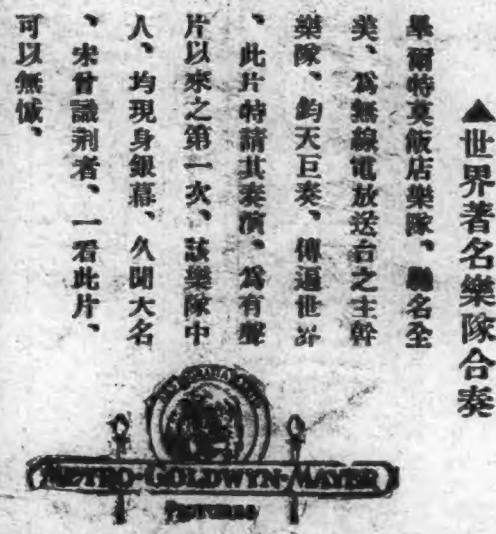 ▲世界著名樂隊合奏
畢爾特莫飯店樂隊、馳名全
美、為無線電放送台之主幹
樂隊、鈞天巨奏、傳遍世界
、此片特請其奏演、為有聲
片以來之第一次、該樂隊中
人、均現身銀幕、久聞大名
、未曾識荆者、一看此片、
可以無憾、
METRO-GOLDWYN-MAYER
PICTURES